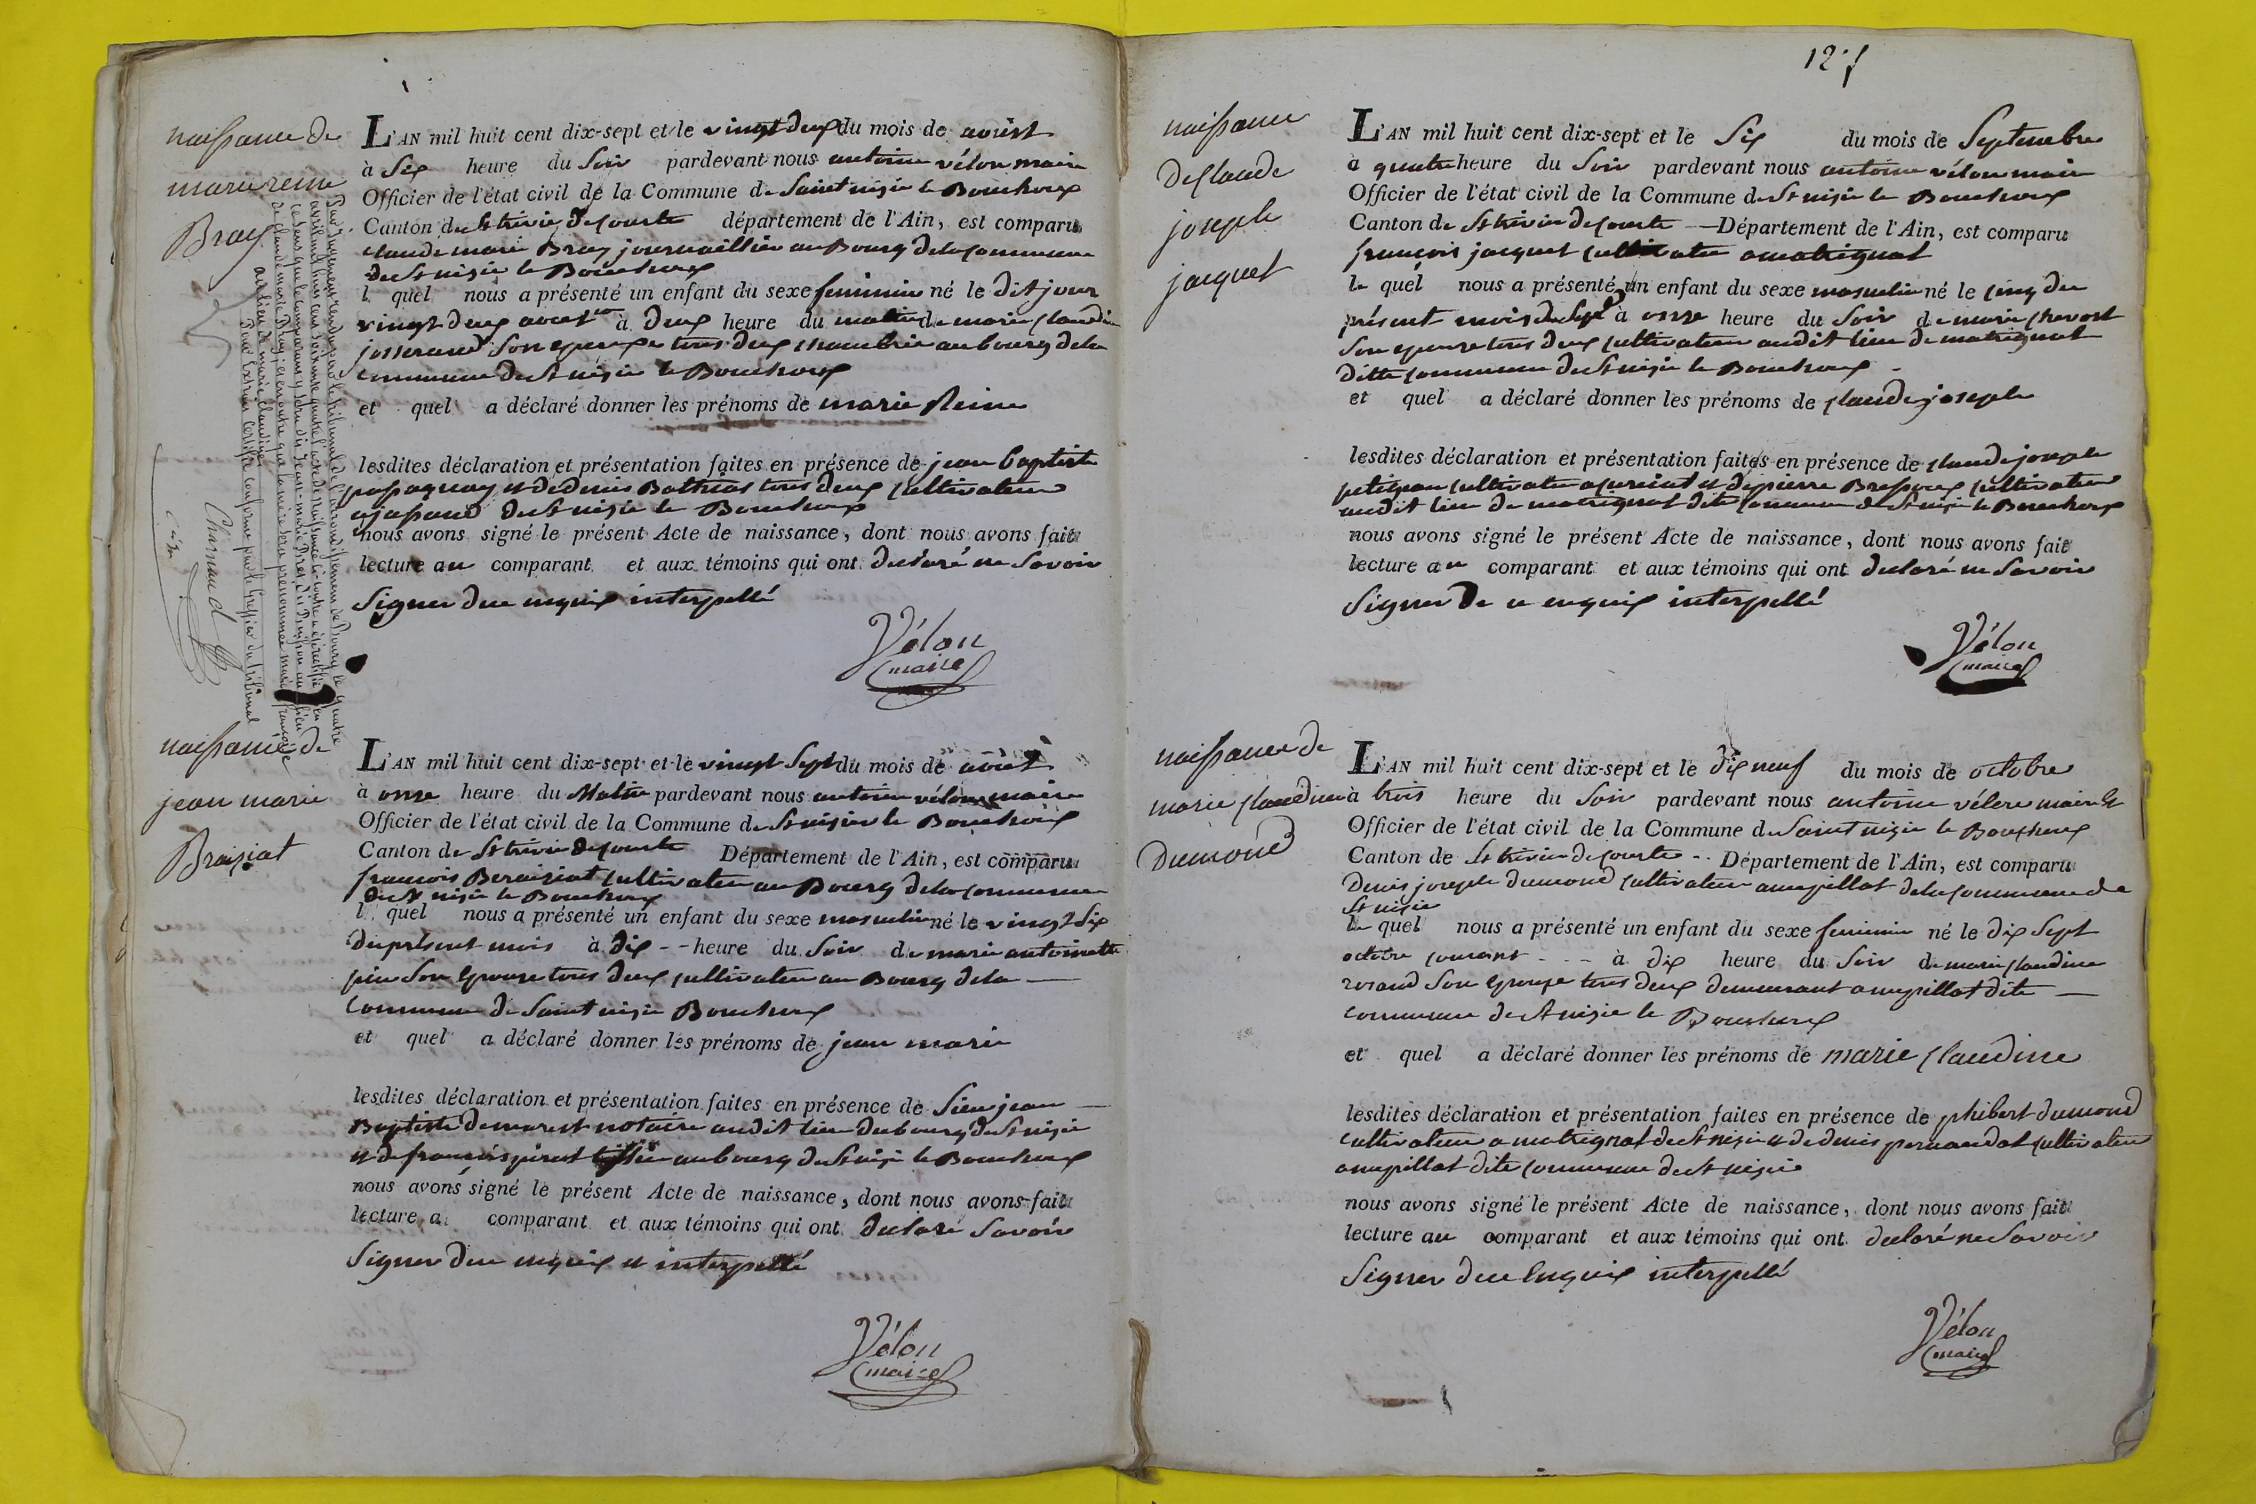 naissance de
marie reine
Bray
L'AN mil huit cent dix-sept et le vingt deux du mois de aoust
à Six heure du Soir pardevant nous antoine vélon maire
Officier de l'état civil de la Commune de Saint nizie le Bouchoux
Canton de St trivie de courte département de l'Ain, est comparu
claude marie Bray journaillier au Bourg de la commune
de St nizie le Bouchoux
l quel nous a présenté un enfant du sexe feminin né le dit jour
vingt deux aoust à deux heure du matin de marie claudine
josserand Son epouse tous deux au bourg de la
commune de St nizie le Bouchoux
et quel a déclaré donner les prénoms de marie Reine
lesdites déclaration et présentation faites en présence de jean baptiste
et de denis Bathias tous deux cultivateur
de St nizie le Bouchoux
nous avons signé le présent Acte de naissance, dont nous avons fait
lecture au comparant et aux témoins qui ont declaré ne Savoir
Signer due enquix interpellé
Vélon
maire
Par jugement rendu par le tribunal de l'arrondissement de Bourg le quatre
avril mil huit cent soixante quatre l'acte de naissance ci-contre a été rectifié en
ce sens que le comparant y sera dit Jean-marie Bray au lieu
de claude marie Bray, et en outre que la mère sera prénommée marie françoise
au lieu de marie claudine
Pour Extrait Certifié conforme par le Greffier du tribunal
Charnaud
naissance de
jean marie
Braiziat
L'AN mil huit cent dix-sept et le vingt Sept du mois de aout
à onze heure du Matin pardevant nous antoine vélon maire
Officier de l'état civil de la Commune de St nizie le Bouchoux
Canton de St trivie de courte Département de l'Ain, est comparu
francois Beraiziat cultivateur au Bourg de la commune
de St nizie le Bouchoux
l quel nous a présenté un enfant du sexe masculin né le vingt Six
du présent mois à dix heure du Soir de marie antoinette
Son Epouse tous deux cultivateur au Bourg de la
commune de Saint nizie Bouchoux
et quel a déclaré donner les prénoms de jean marie
lesdites déclaration et présentation faites en présence de Sieur jean
Baptiste demarest notaire audit lieu du bourg de St nizie
et de francois au bourg de St nizie le Bouchoux
nous avons signé le présent Acte de naissance, dont nous avons fait
lecture a comparant et aux témoins qui ont declaré Savoir
Signer due enquix et interpellé
Vélon
maire
naissance
de claude
joseph
jacquet
L'AN mil huit cent dix-sept et le Six du mois de Septembre
à quatre heure du Soir pardevant nous antoine vélon maire
Officier de l'état civil de la Commune de St nizie le Bouchoux
Canton de St trivie de courte Département de l'Ain, est comparu
francois jacquet cultivateur a matrignat
le quel nous a présenté un enfant du sexe masculin né le cinq du
présent mois de à onze heure du Soir de marie chevost
Son epouse tous deux cultivateur audit lieu de matrignat
ditte commune de St nizie le Bouchoux
et quel a déclaré donner les prénoms de claude joseph
lesdites déclaration et présentation faites en présence de claude joseph
petitjean cultivateur a et de pierre Bressoux cultivateur
audit lieu de matrignat dite commune de St nizie le Bouchoux
nous avons signé le présent Acte de naissance, dont nous avons fait
lecture au comparant et aux témoins qui ont declaré ne Savoir
Signer De ce enquix interpellé
Vélon
maire
naissance de
marie claudine
dumond
L'AN mil huit cent dix-sept et le dix neuf du mois de octobre
à trois heure du Soir pardevant nous antoine vélon maire
Officier de l'état civil de la Commune de Saint nizie le Bouchoux
Canton de St trivie de courte Département de l'Ain, est comparu
Denis joseph dumond cultivateur a mepillat de la commune de
St nizie
le quel nous a présenté un enfant du sexe feminin né le dix Sept
octobre courant à dix heure du Soir de marie claudine
rozand Son Epouse tous deux demeurant a mepillat dite
commune de St nizie le Bouchoux
et quel a déclaré donner les prénoms de marie claudine
lesdites déclaration et présentation faites en présence de phibert dumond
cultivateur a matrignat de St nizie et de denis cultivateur
a mepillat dite commune de St nizie
nous avons signé le présent Acte de naissance, dont nous avons fait
lecture au comparant et aux témoins qui ont declaré ne Savoir
Signer due Enquix interpellé
Vélon
maire